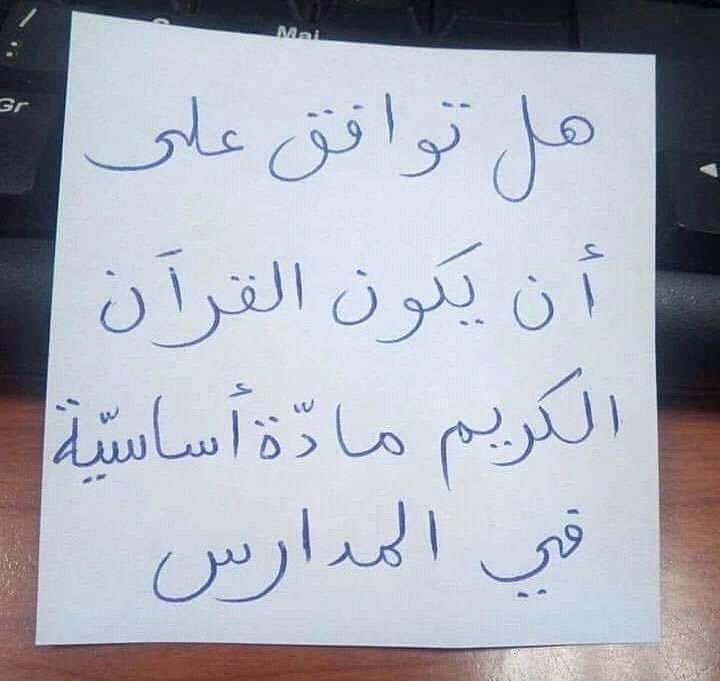 هل توافق على
أن يكون القرآن
الكريم مادّة أساسيّة
في المدارس
Maj
Gr
/
: